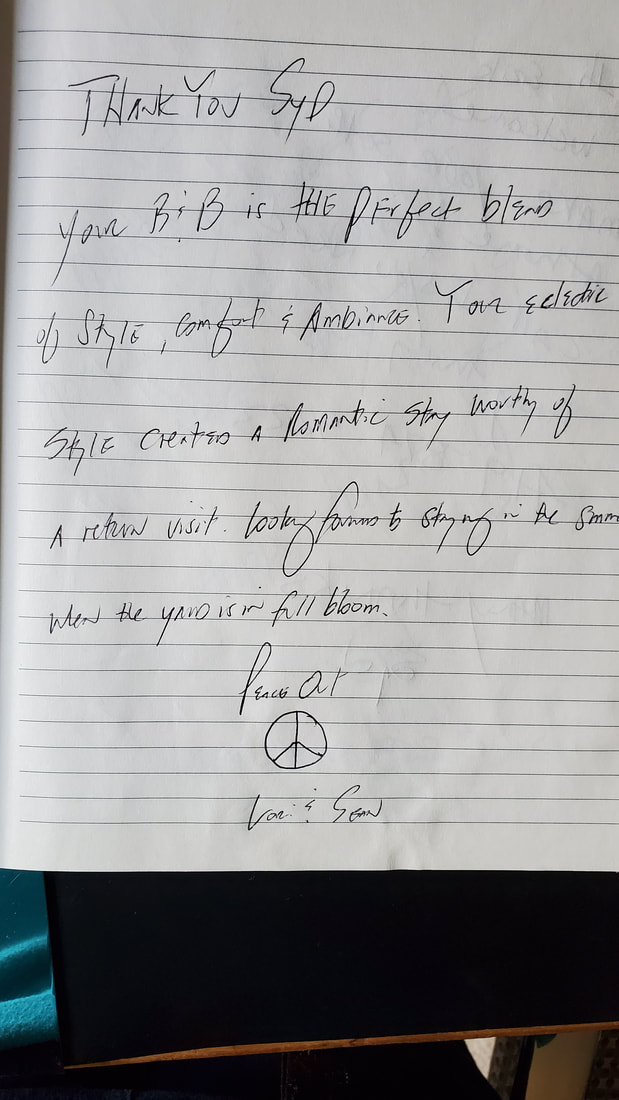 THANK YOU SYD
Your B & B is tHE pErfect blEND
of StylE, comfort & AmbiANCE. Your eclectic
StylE CreAtED A Romantic stay worthy of
A return visit. Looking forward to staying in the
when the yARD is in full bloom.
PEACE Out
& SEAN